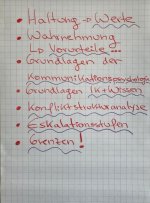 • Haltung → Werte
• Wahrnehmung
↳ Vorurteile...
• Grundlagen der
Kommunikationspsychologie
• Grundlagen IK+Wissen
• Konfliktstrukturanalyse
• Eskalationsstufen
• Grenzen!